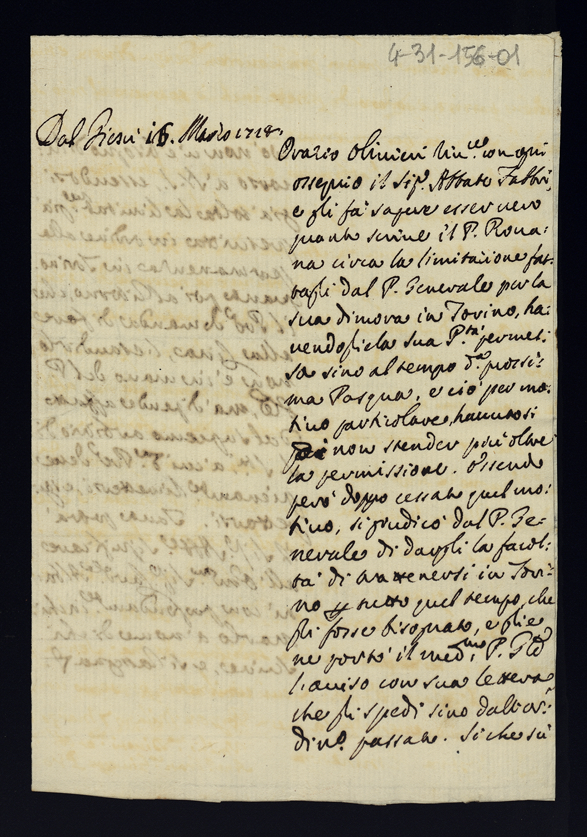 4-31-156-01
Dal Giesù 16. Marzo 1718.
Orazio Olivieri riv.ce con ogni
ossequio il Sig.r Abbate Fabbri,
e gli fà sapere esser vero
quanto scrive il P. Roma-
na circa la limitazione fat-
tagli dal P. Generale per la
sua dimora in Torino, ha-
vendogliela sua P.tà permes-
sa sino al tempo d.a prossi-
ma Pasqua, e ciò per mo-
tivo particolare, havutosi
non stender più oltre
la permissione. Essendo
però doppo cessato quel mo-
tivo, si giudicò dal P. Ge-
nerale di dargli la facol-
tà di trattenersi in Tori-
no tutto quel tempo, che
gli fosse bisognato, e glie
ne portò il med.mo P. G'le
l'aviso con sua lettera
che gli spedì sino dall'or-
din.o passato. Si che sù